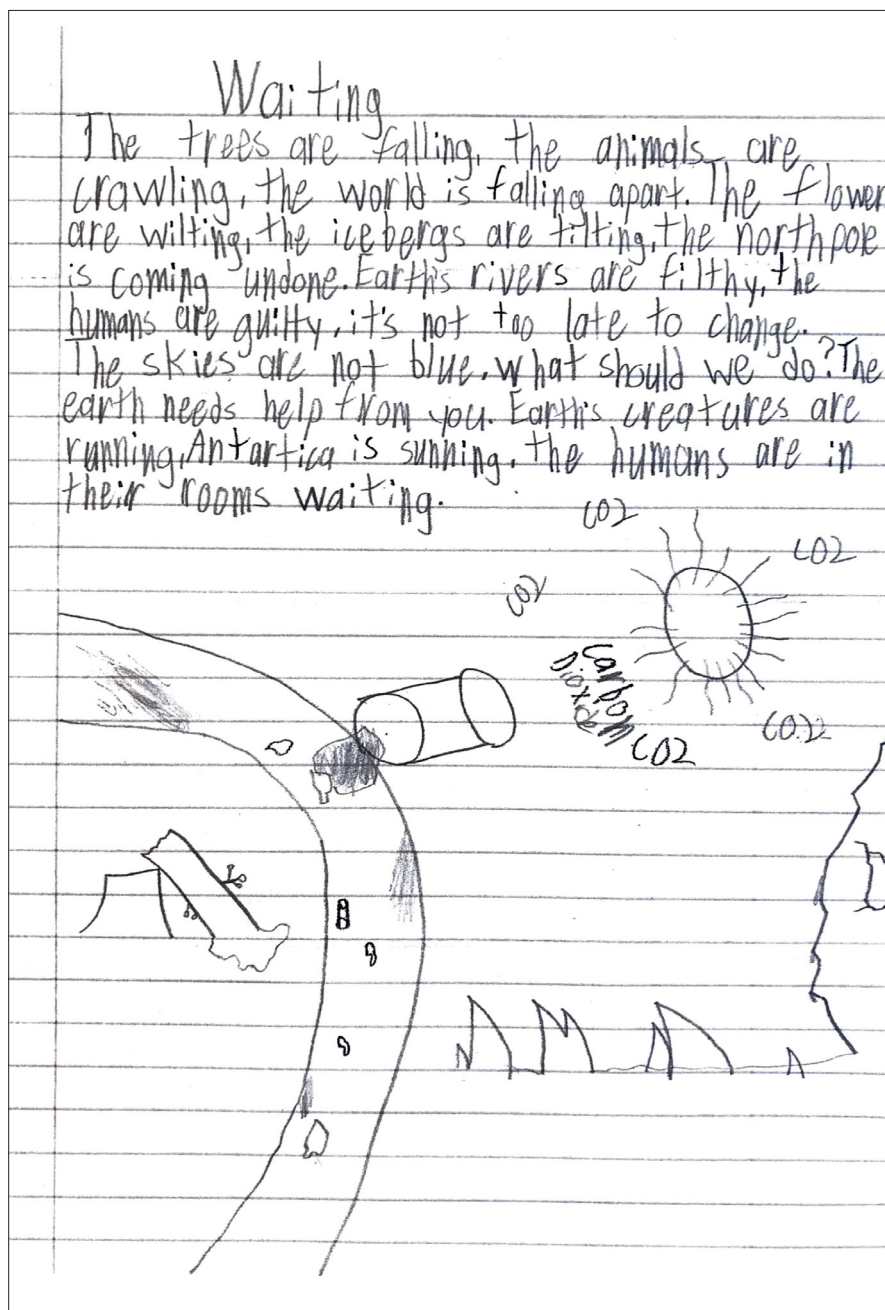 Waiting
The trees are falling, the animals are
crawling, the world is falling apart. The flower
are wilting, the icebergs are tilting, the northpole
is coming undone. Earth's rivers are filthy, the
humans are guilty, it's not too late to change.
The skies are not blue, what should we do? The
earth needs help from you. Earth's creatures are
running, Antartica is sunning, the humans are in
their rooms waiting.
CO2
CO2
CO2
Carbon
Dioxide
CO2
CO2